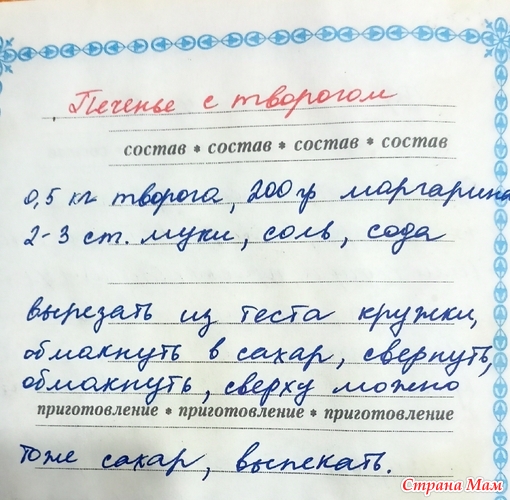 Печенье с творогом
состав * состав * состав * состав
0,5 кг творога, 200 гр маргарина
2-3 ст. муки, соль, сода
вырезать из теста кружки,
обмакнуть в сахар, свернуть,
обмакнуть, сверху можно
приготовление * приготовление * приготовление
тоже сахар, выпекать.
Страна Мам